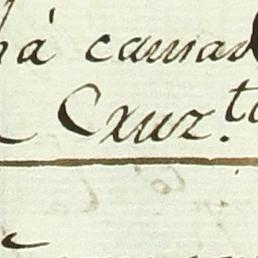 há camar
Cruz.to